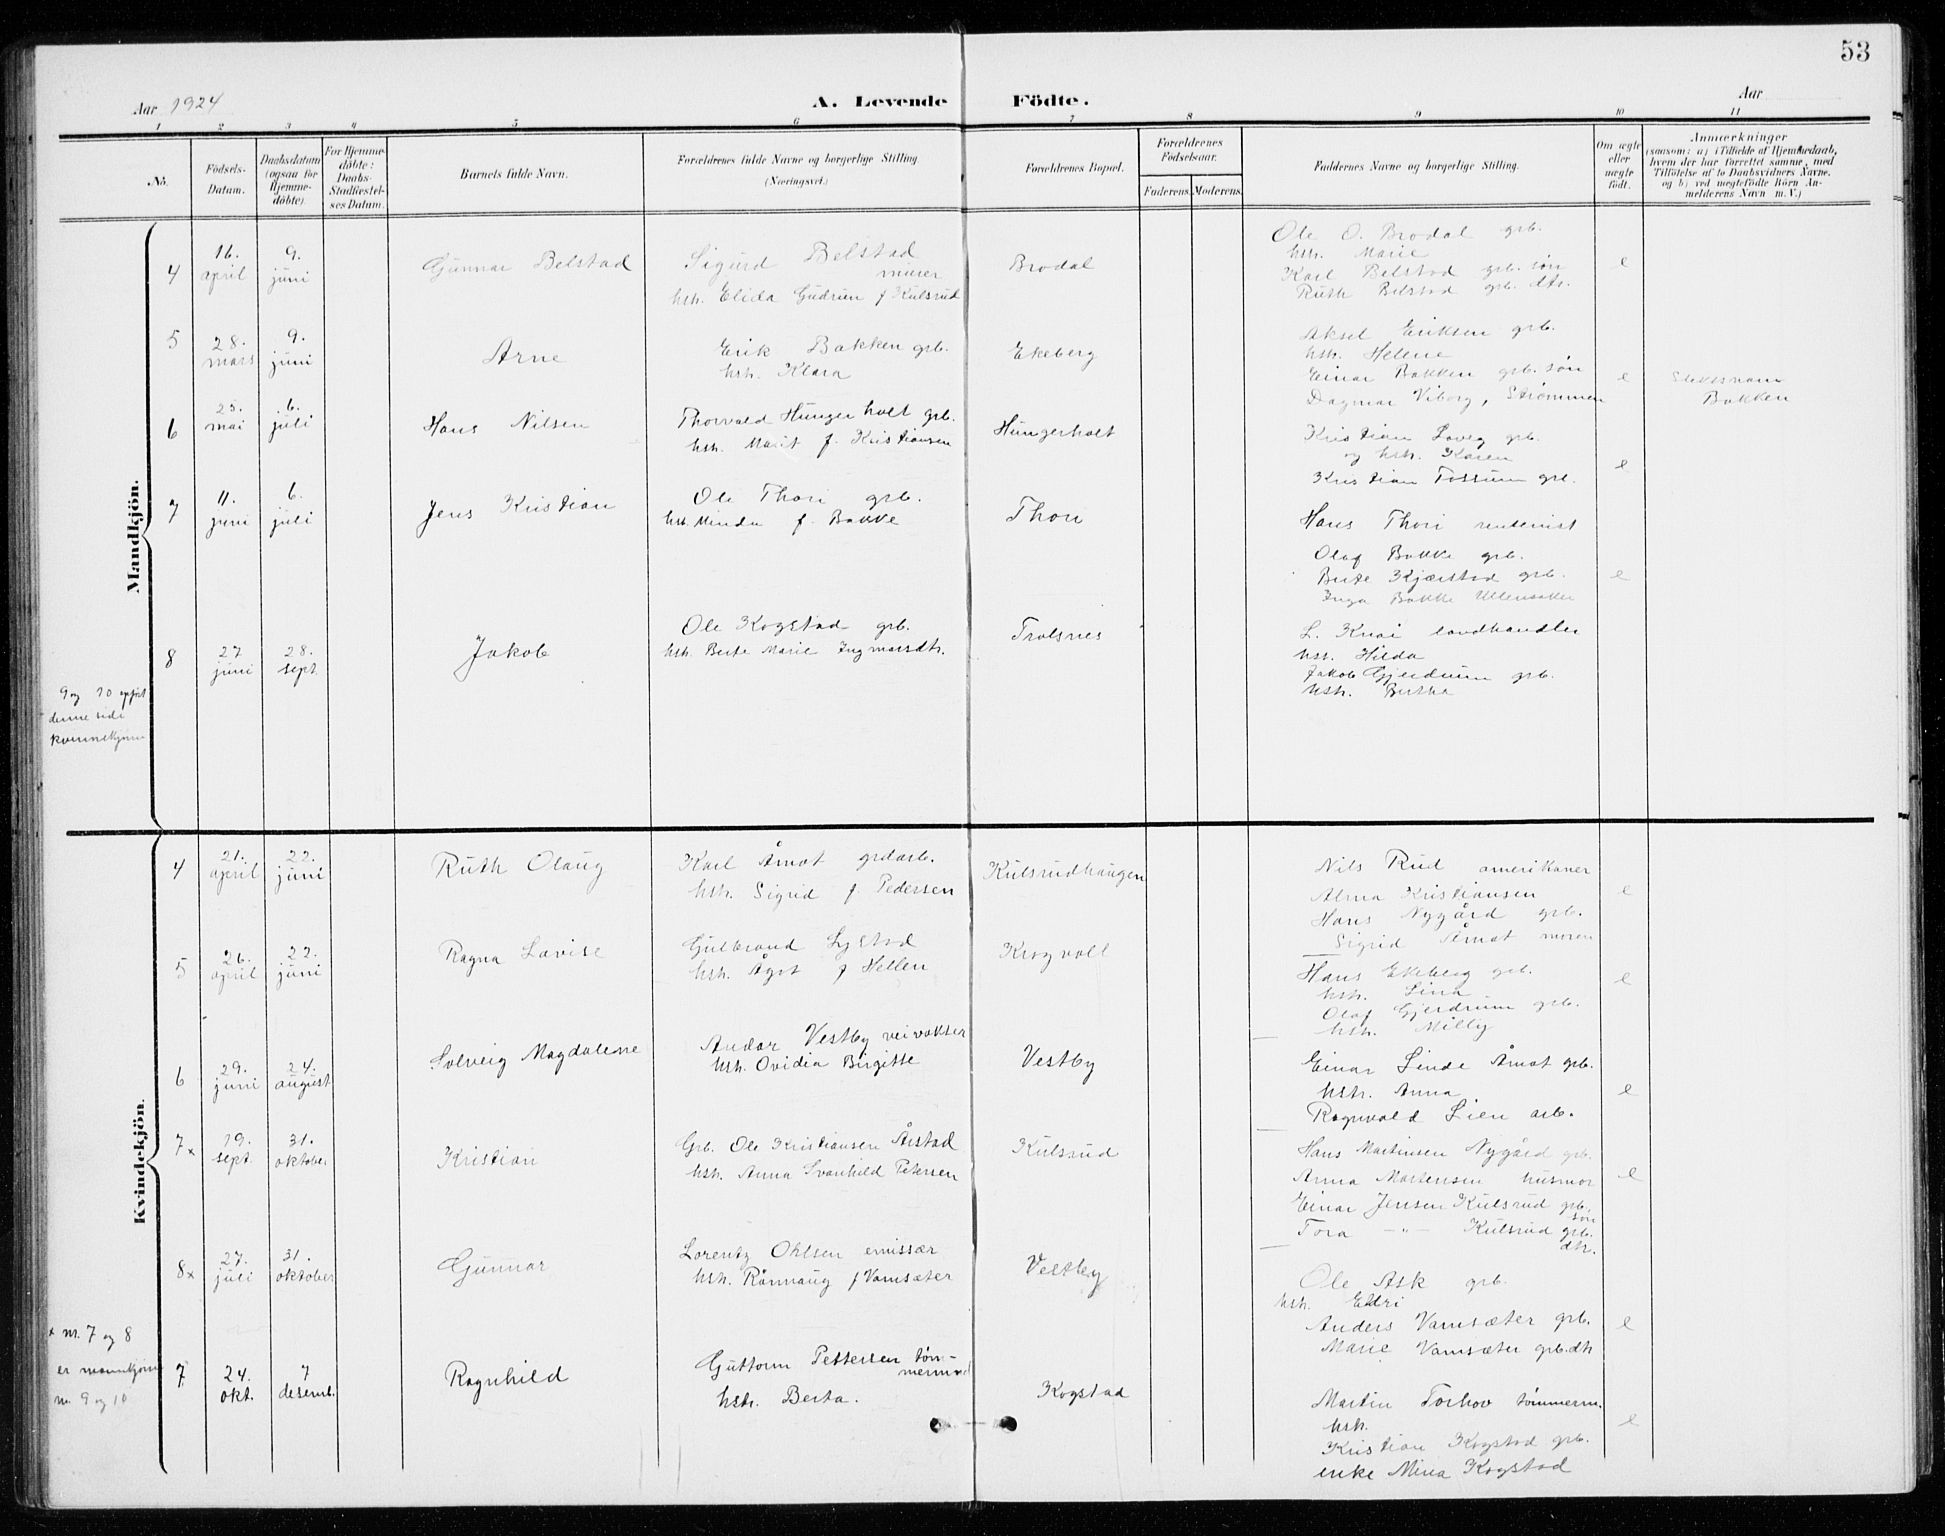 53
Aar 1924
A. Levende Födte.
Aar
1 2 3 4 5 6 7 8 9 10 11
No.
Födsels-
Datum.
Daabsdatum
(ogsaa for
Hjemme-
döbte).
For Hjemme-
döbte:
Daabs-
Stadfæstel-
ses Datum.
Barnets fulde Navn.
Forældrenes fulde Navne og borgerlige Stilling.
(Næringsvei.)
Forældrenes Bopæl.
Forældrenes
Födselsaar.
Faderens. Moderens.
Faddernes Navne og borgerlige Stilling.
Om ægte
eller
uægte
födt.
Anmærkninger
(saasom: a) i Tilfælde af Hjemmedaab,
hvem der har forrettet samme, med
Tilföielse af to Daabsvidners Navne,
og b) ved uægtefödte Börn An-
melderens Navn m. V.)
Mandkjön.
4
16.
april
9.
juni
Gunnar Belstad
Sigurd Belstad
murer
hst. Elida Gudrun f Kulsrud
Brodal
Ole O. Brodal grb.
hst. Marie
Karl Belstad grb. søn
Ruth Belstad grb. dtr.
e
5
28.
mars
9.
juni
Arne
Erik Bakken grb.
hst. Klara
Ekeberg
Aksel Eriksen grb.
hst. Helene
Einar Bakken grb. søn
Dagmar Viborg, Strømmen
e
Slektsnavn
Bakken
6
25.
mai
6.
juli
Hans Nilsen
Thorvald Hungerholt grb.
hst. Marit f. Kristiansen
Hungerholt
Kristian Loveg grb.
og hst. Karen
Kristian Tossum grb.
e
7
11.
juni
6.
juli
Jens Kristian
Ole Thon grb.
hst. Minda f. Bakke
Thon
Hans Thon rentenist
Olaf Bakke grb.
Berte Kjærstad grb.
Inga Bakke Ullensaker
e
8
27
juni
28.
sept.
Jakob
Ole Kogstad grb.
hst. Berte Marie Ingmarsdtr.
Trolsnes
L. Knai landhandler
hst. Hilda
Jakob Gjerdrum grb.
hst. Berthe
9 og 10 opført
denne side
kvinnekjønn
Kvindekjön.
4
21.
april
22.
juni
Ruth Olaug
Karl Åmot grdarb.
hst. Sigrid f Pedersen
Kulsrudhaugen
Nils Rud amerikaner
Alma Kristiansen
Hans Nygård grb.
Sigrid Åmot moren
e
5
26.
april
22.
juni
Ragna Lovise
Gulbrand Lystad
hst. Ågot f Hellen
Krogvoll
Hans Ekeberg grb.
hst. Lina
Olaf Gjerdrum grb.
hst. Milly
e
6
29.
juni
24.
august
Solveig Magdalene
Andor Vestby veivokter
hst. Ovidia Birgitte
Vestby
Einar Linde Åmot grb.
hstr. Anna
Ragnvald Lien arb.
e
7x
19.
sept.
31.
oktober
Kristian
Grb. Ole Kristiansen Årstad
hst. Anna Svanhild Petersen
Kulsrud
Hans Martinsen Nygård grb.
Anna Martensen husmor
Einar Jensen Kulsrud grb.
søn
Tora -"- Kulsrud grb.
dtr.
e
8x
27.
juli
31.
oktober
Gunnar
Lorentz Ohlsen emissær
hst. Rønnaug f Vamsæter
Vestby
Ole Ask grb.
hst. Eldri
Anders Vamsæter grb.
Marie Vamsæter grb. dtr
e
x nr. 7 og 8
er mannkjønn
nr. 9 og 10
7.
24.
okt.
7
desemb.
Ragnhild
Guttorm Pettersen tøm-
mermand
hst. Berta.
Kogstad
Martin Torhov tømmerm.
hst.
Kristian Kogstad grb.
enke Mina Kogstad
e